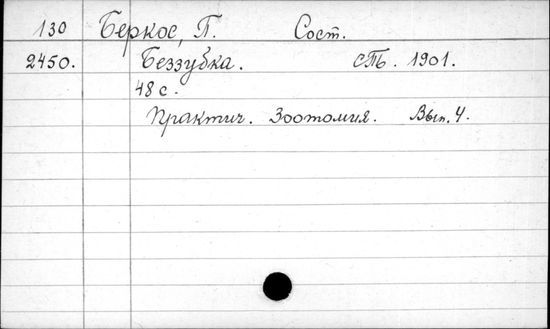 130 Беркос, П. Сост.
2450. Беззубка. СПБ. 1901.
48 с.
Практич. Зоотомия. Вып. 4.